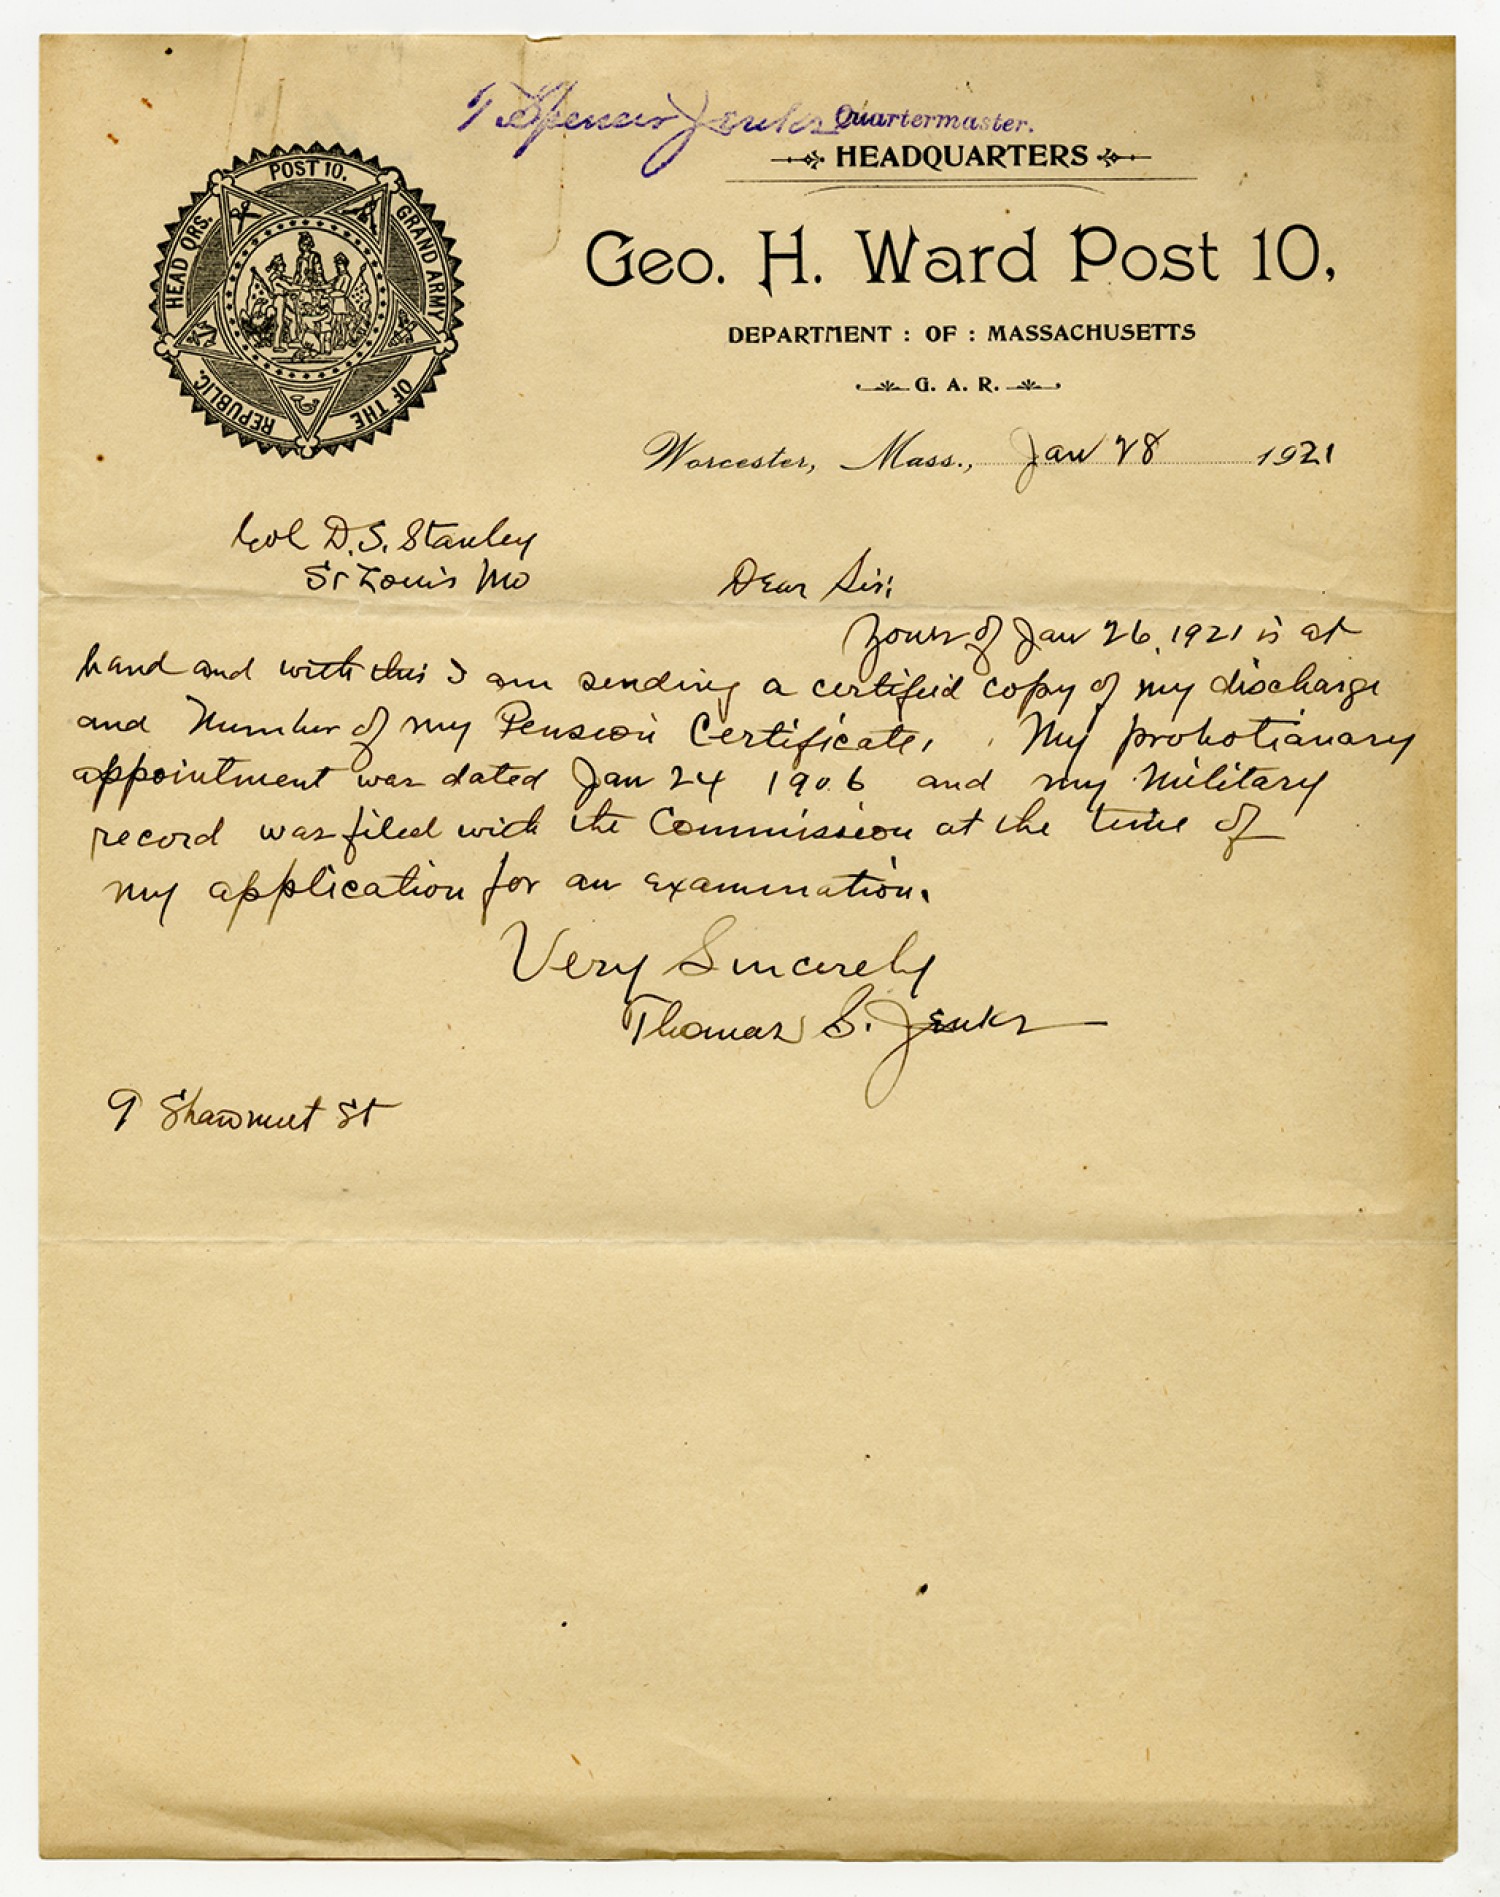 T Spencer Jenks Quartermaster.
HEADQUARTERS
POST 10.
GRAND ARMY
OF THE
REPUBLIC.
HEAD QRS.
Geo. H. Ward Post 10,
DEPARTMENT : OF : MASSACHUSETTS
G. A. R.
Worcester, Mass., Jan 28 1921
Col D. S. Stanley
St Louis Mo
Dear Sir:
Yours of Jan 26, 1921 is at
hand and with this I am sending a certified copy of my discharge
and Number of my Pension Certificate. My probotianary
appointment was dated Jan 24 1906 and my Military
record was filed with the Commission at the time of
my application for an examination.
Very Sincerely
Thomas S. Jenks
9 Shawmut St